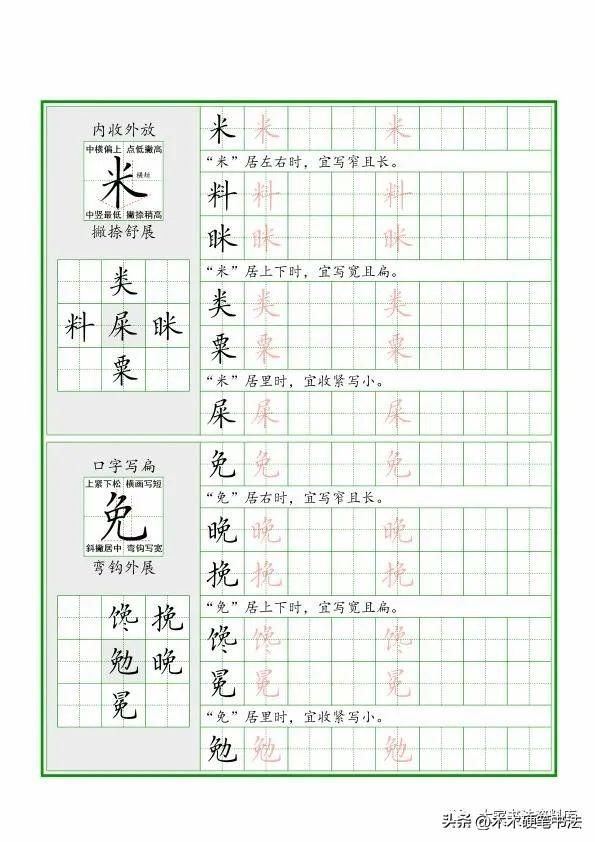 内收外放
中横偏上 点低撇高
米 横短
中竖最低 撇捺稍高
撇捺舒展
类
料 屎 眯
粟
米 米 米
“米”居左右时，宜写窄且长。
料 料 料
眯 眯 眯
“米”居上下时，宜写宽且扁。
类 类 类
粟 粟 粟
“米”居里时，宜收紧写小。
屎 屎 屎
口字写扁
上紧下松 横画写短
免
斜撇居中 弯钩写宽
弯钩外展
馋 挽
勉 晚
冕
免 免 免
“免”居右时，宜写窄且长。
晚 晚 晚
挽 挽 挽
“免”居上下时，宜写宽且扁。
馋 馋 馋
冕 冕 冕
“免”居里时，宜收紧写小。
勉 勉 勉
头条 @木木硬笔书法